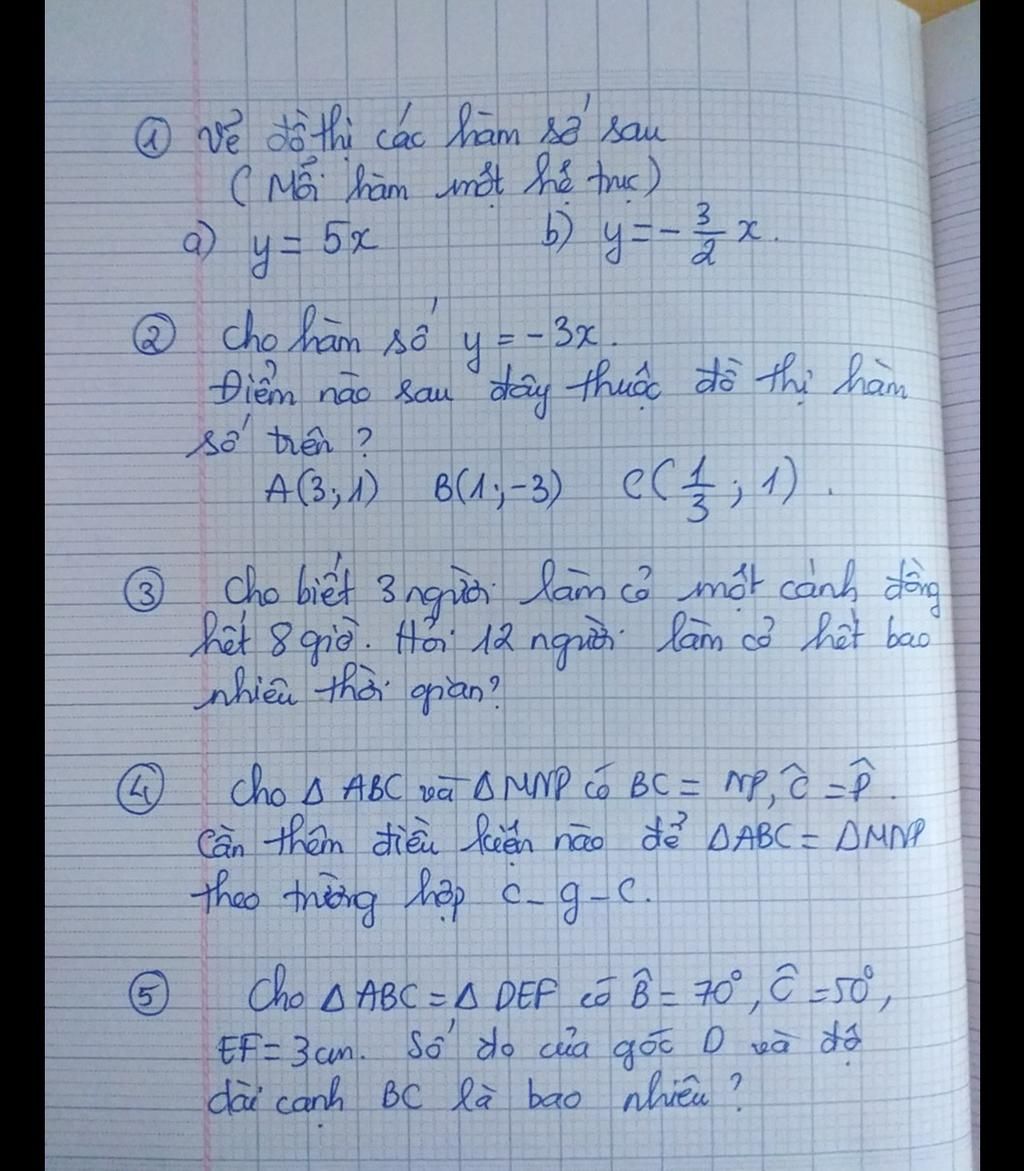 ① Vẽ đồ thị các hàm số sau
(Mỗi hàm một hệ trục)
a) y = 5x b) y = - 3/2 x.
② Cho hàm số y = -3x.
Điểm nào sau đây thuộc đồ thị hàm
số trên ?
A(3; 1) B(1; -3) C(1/3 ; 1) .
③ Cho biết 3 người làm cỏ một cánh đồng
hết 8 giờ. Hỏi 12 người làm cỏ hết bao
nhiêu thời gian?
④ Cho Δ ABC và Δ MNP có BC = NP, Ĉ = P̂ .
Cần thêm điều kiện nào để ΔABC = ΔMNP
theo trường hợp c - g - c.
⑤ Cho Δ ABC = Δ DEF có B̂ = 70°, Ĉ = 50°,
EF = 3cm. Số đo của góc D và độ
dài cạnh BC là bao nhiêu ?